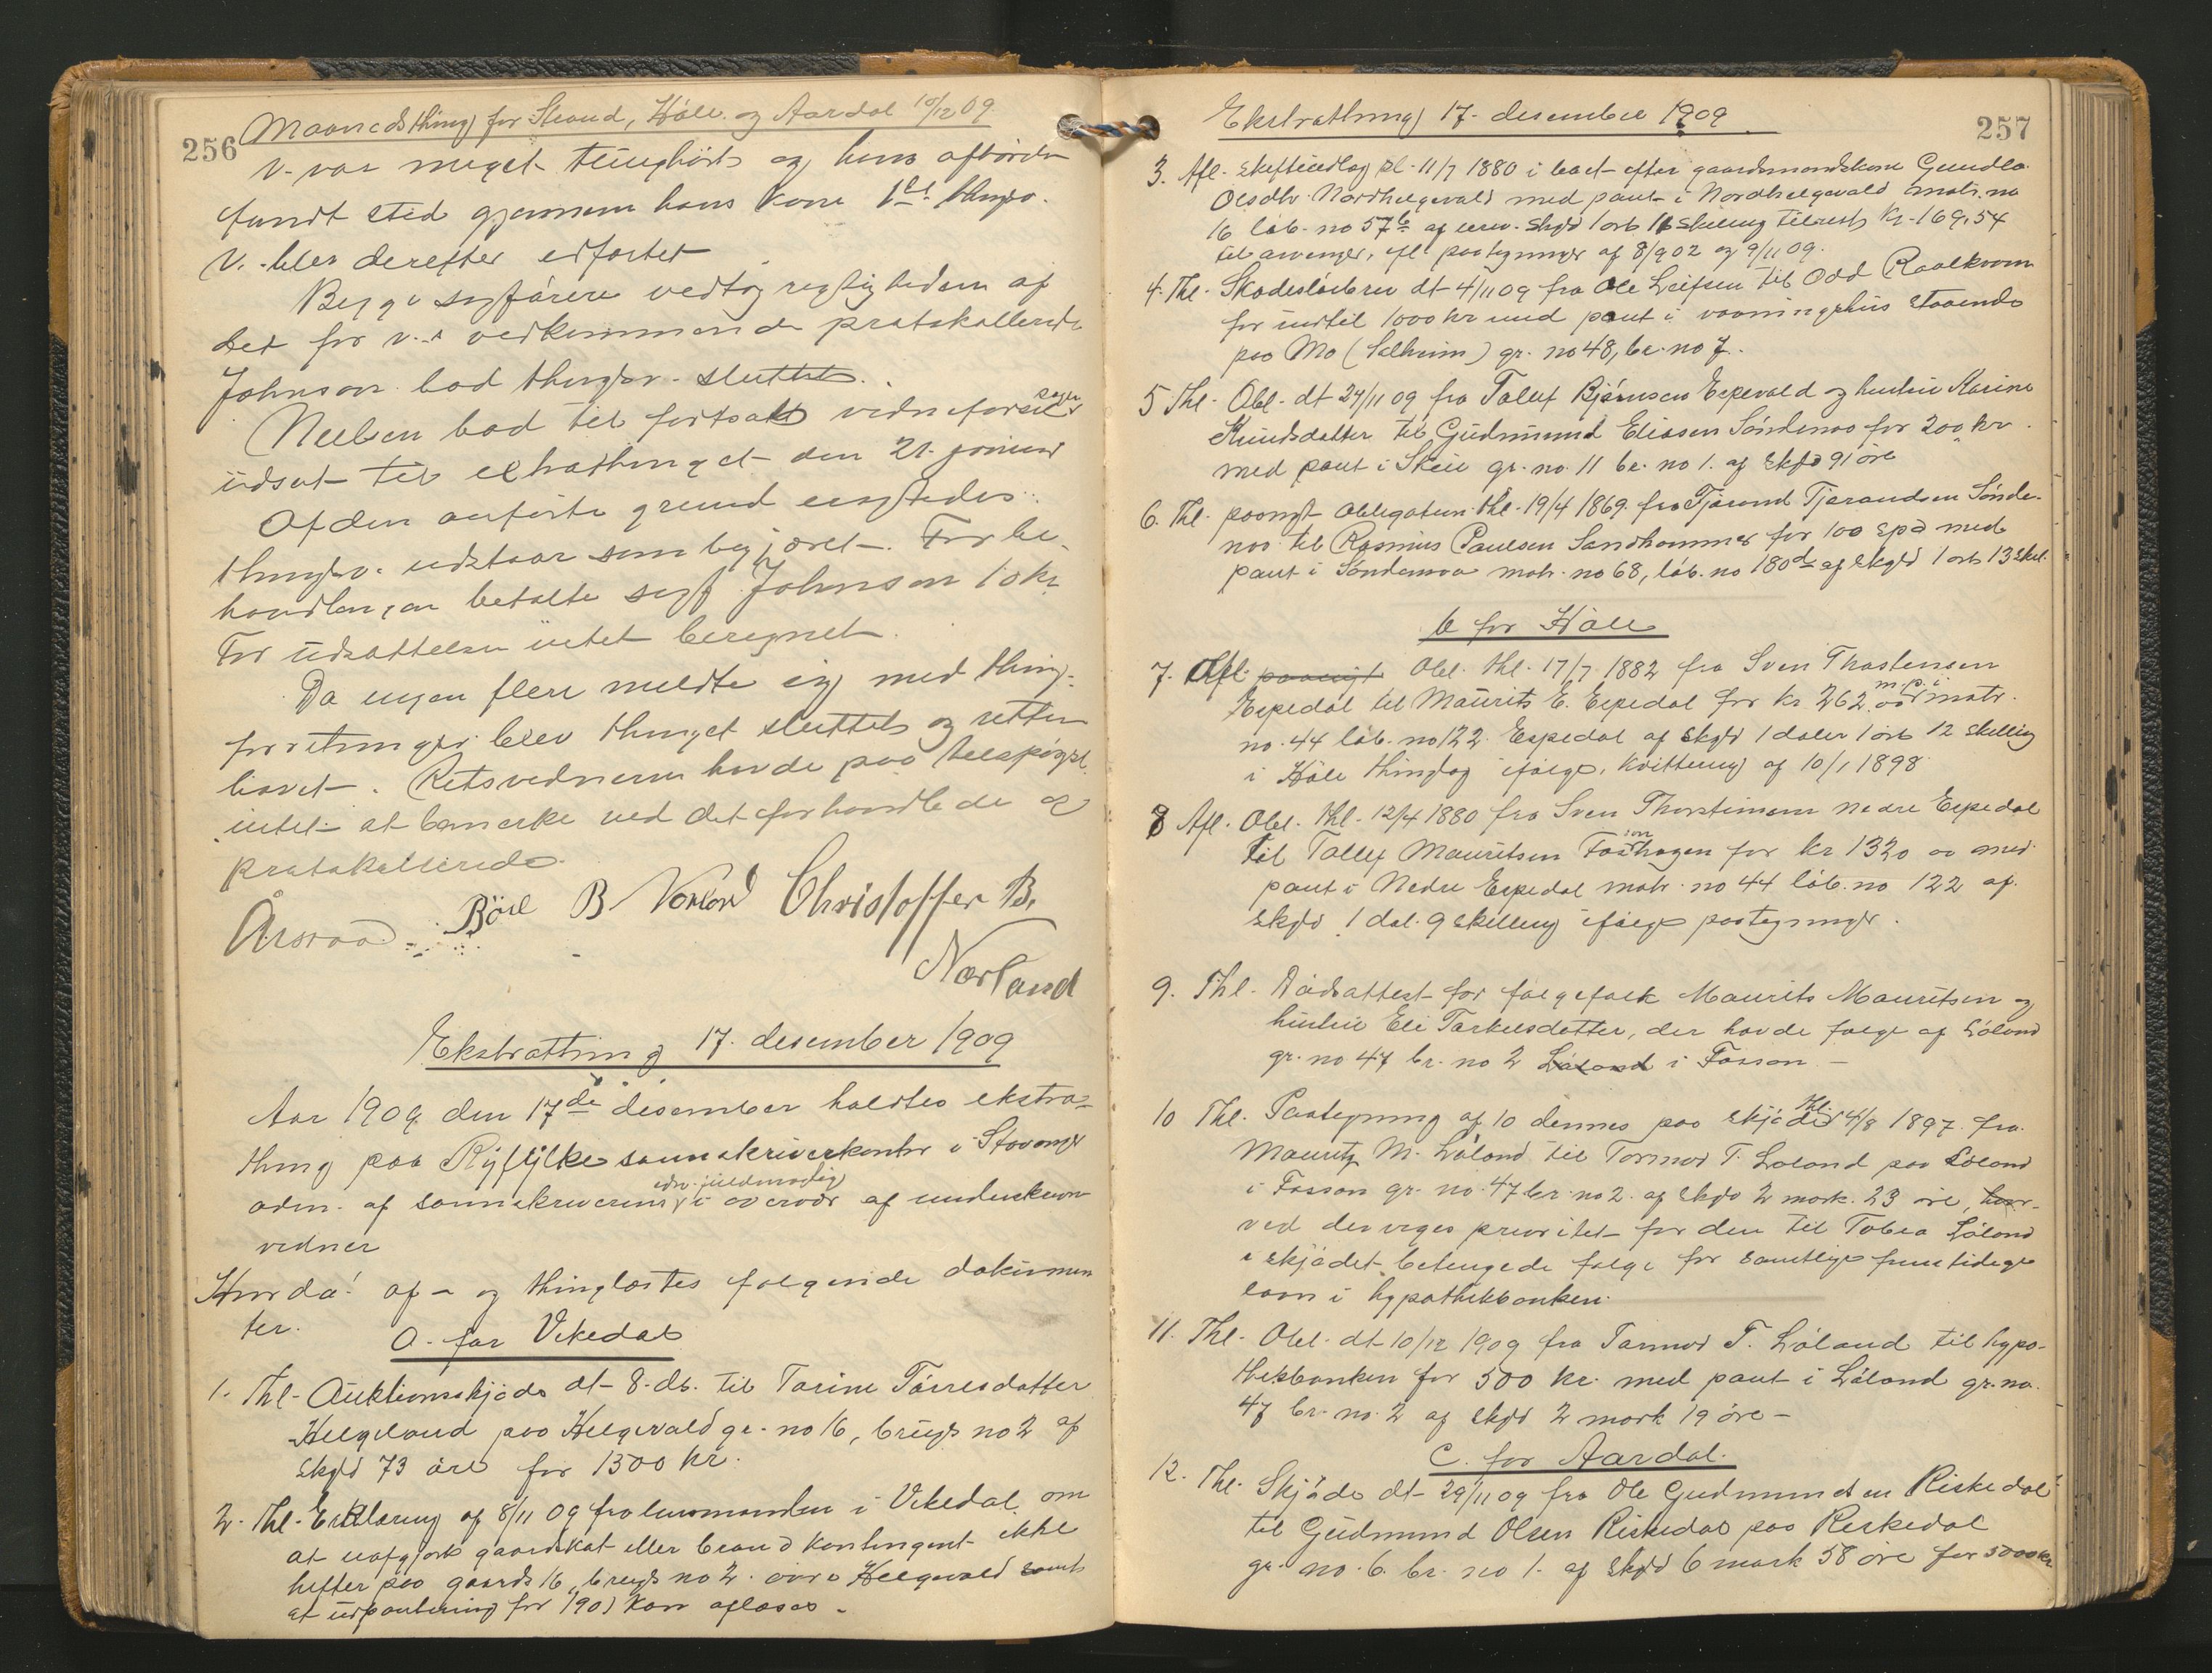 256
Maanedsthing for Strand, Höle og Aardal 10/12 09
V. var meget tunghört og hans afhörelse
fandt sted gjennem hans kone 1ste thingsv.
V. blev derefter edfæstet
Begge sagförere vedtog rigtigheden af
det for v.s vedkommende protokollerede
Johnson bad thingsv. sluttet.
Nielsen bad til fortsat vidneforsel sagen
udsat til extrathinget den 21. januar
Af den anförte grund
thingsv. udstaar som begjæret. For be-
handlingen betalte sagf. Johnson 10 kr.
For udsættelsen intet beregnet.
Da ingen flere meldte sig med thing-
forretninger blev thinget sluttet og retten
hævet. Retsvidnerne havde paa tilspörgsel
intet at bemærke ved det forhandlede og
protokollerede.
Aarvaad Börl B Norland Christoffer B.
Norland
Ekstrathing 17. desember 1909
Aar 1909 den 17de desember holdtes ekstra-
thing paa Ryfylke sorenskriverkontor i Stavanger
adm. af sorenskriveren edv. fuldmægtig i overvær af underskrevne
vidner
Hvorda: af- og thinglæstes fölgende dokumen
ter.
A. for Vikedal
1. Thl. Auktionsskjöde dt 8. ds. til Tarine Törresdatter
Helgeland paa Helgevald gr. no 16, brugs no 2 af
skyld 73 öre for 1300 kr.
2. Thl. Erklæring af 8/11 09 fra lensmanden i Vikedal om
at uafgjort gaardskat eller brandkontingent ikke
hefter paa gaards 16, brugs no 2 övre Helgevald samt
at udpantning for 1901 kan aflæses.
Ekstrathing 17. desember 1909
257
3. Afl. skifteudlæg pl. 11/7 1880 i boet efter gaardmandskone Gundla
Olsdtr Nordhelgevald med pant i Nordhelgevald matr. no
16 löb. no 57b af urev. skyld 1 ort 16 skilling tilrest kr. 169,54
til arvinger, ifl paategninger af 8/9 02 og 9/11 09.
4. Thl. Skadeslösbrev dt 4/11 09 fra Ole Leifsen til Odd Raalkvam
for indtil 1000 kr med pant i vaaningshus staaende
paa Mo (Solheim) gr. no 48, br. no 7.
5 Thl. Obl. dt 24/11 09 fra Tollef Björnsen Espevald og hustru Karine
Knudsdatter til Gudmund Eliasen Söndenaa for 200 kr.
med pant i Skeie gr. no. 11 br. no 1. af skyld 91 öre
6. Thl. paanyt obligation thl. 19/4 1869 fra Tjörand Tjerandsen Sönde-
naa til Rasmus Paulsen Sandhammer for 100 spd med
pant i Söndenaa matr. no 68, löb. no 180d af skyld 1 ort 13 skil.
b for Höle
7. Afl. paanyt Obl. thl. 17/7 1882 fra Sven Thorstensen
Espedal til Maurits E. Espedal for kr. 262.00 m. p. i matr.
no. 44 löb. no 122 Espedal af skyld 1 daler 1 ort 12 skilling
i Höle thinglag ifölge kvittering af 10/1 1898
8 Afl. Obl. thl. 12/4 1880 fra Sven Thorstensen nedre Espedal
til Tollef Mauritsen Fossanhagen for kr 1320 00 med
pant i Nedre Espedal matr. no 44 löb. no 122 af
skyld 1 dal. 9 skilling ifölge paategninger.
9. Thl. Dödsattest for folgefolk Maurits Mauritsen og
hustru Eli Torkelsdatter, der havde folge af Löland
gr. no 47 br. no 2 Löland i Fossan –
10 Thl. Paategning af 10 dennes paa skjöde thl. 4/8 1897 fra
Mauritz M. Löland til Tormod T. Löland paa Löland
i Fossan gr. no. 47 br. no 2. af skyld 2 mark 23 öre, hvor-
ved der viges prioritet for den til Tobia Löland
i skjödet betingede folge for samtlige fremtidige
laan i hypothekbanken.
11. Thl. Obl. dt 10/12 1909 fra Tormod T. Löland til hypo-
thekbanken for 500 kr. med pant i Löland gr. no.
47 br. no. 2 af skyld 2 mark 19 öre –
C. for Aardal.
12. Thl. Skjöde dt 29/11 09 fra Ole Gudmundsen Riskedal
til Gudmund Olsen Riskedal paa Riskedal
gr. no. 6. br. no 1. af skyld 6 mark 58 öre for 5000 kr.